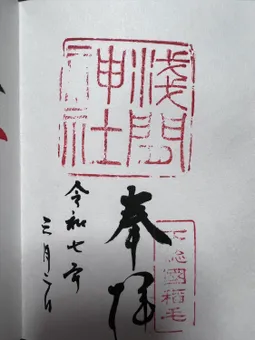 淺間
神社
下総國稲毛
奉拝
令和七年
三月二日